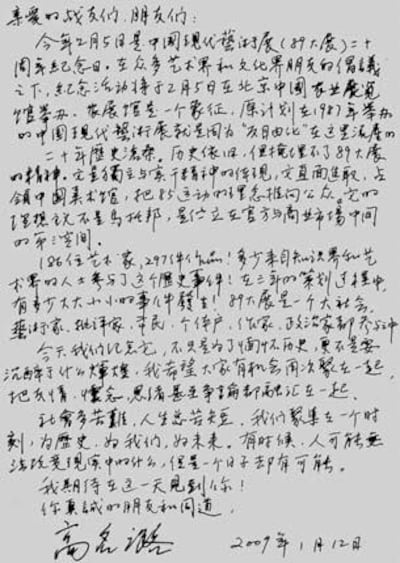 亲爱的战友们、朋友们:
今年2月5日是中国现代艺术展(89大展)二十
周年纪念日。在众多艺术界和文化界朋友的倡议
之下,纪念活动将于2月5日在北京中国农业展览
馆举办。农展馆是一个象征,原计划在1987年举办
的中国现代艺術展就是因为"反自由化"在这里流产的
二十年歷史沧桑。历史依旧,但掩埋不了89大展
的精神。它是独立与实干精神的体现,它直面进取,占
领中国美术馆,把85运动的理念推向公众。它的
理想说不是乌托邦,是伫立在官方与商业市場中间
的第三空间。
186位艺术家,297件作品!多少来自知识界和艺
术界的人士参与了这个歷史事件!在三年的策划过程中,
有多少大大小小的事件發生!89大展是一个大社会,
藝術家、批评家、市民、个体户、作家、政治家都参与其中
今天我们纪念它,不只是为了缅怀历史,更不是要
沉醉于什么輝煌,我希望大家有机会再次聚在一起,
把友情、懷念、思绪甚至争論都融汇在一起。
社會多苦難,人生总苦短,我们聚集在一个时
刻,为歷史、为我们、为未来。有时候,人可能無
法改变现实中的什么,但是一个日子却有可能。
我期待在这一天见到你!
你真誠的朋友和同道,
高名潞 2009年1月12日